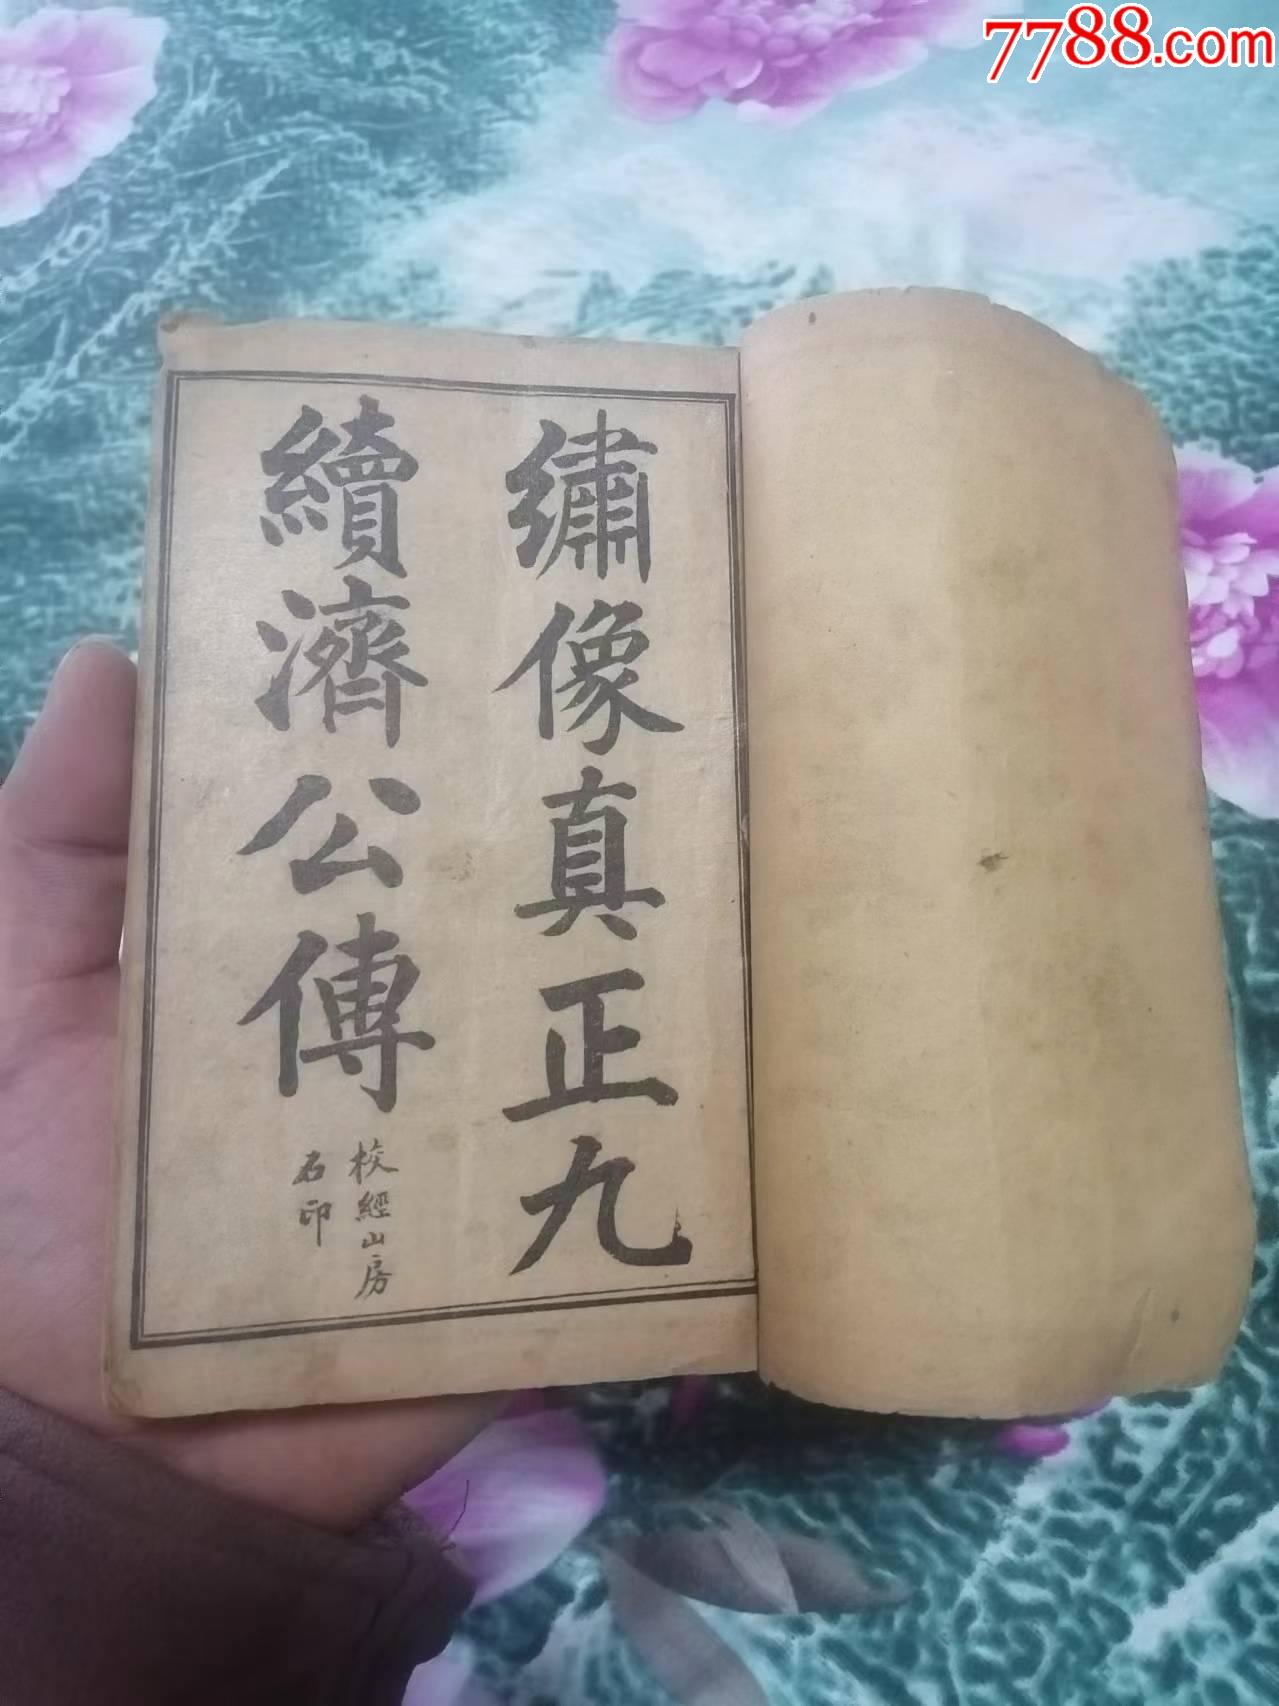 7788.com
繡像真正九
續濟公傳
校經山房
石印